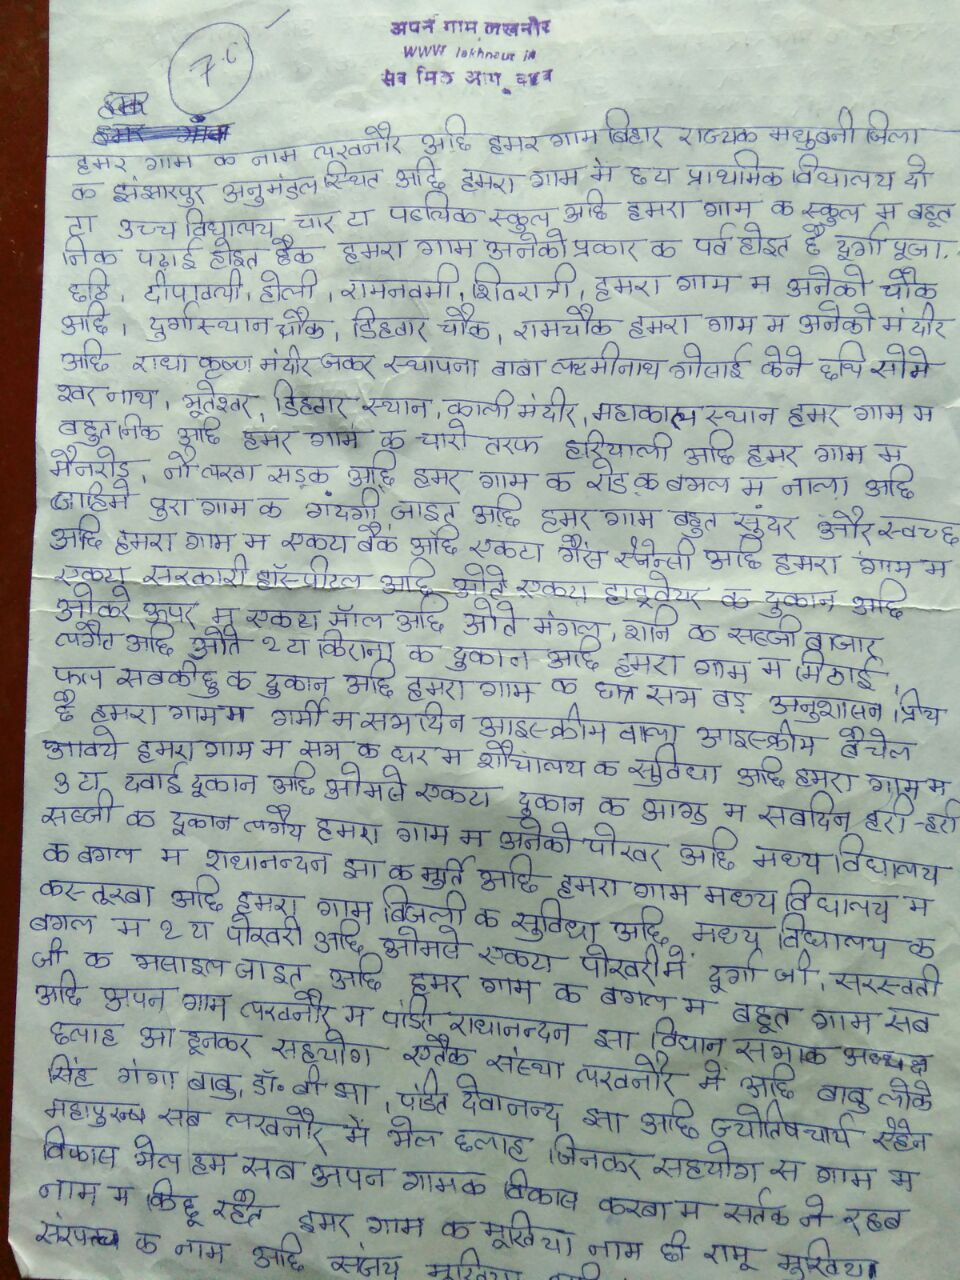 7.5
अपन गाम लखनौर
www lakhnaur in
सब मिल आगू बढब
हमर
हमर गाँव
हमर गाम क नाम लखनौर अछि हमर गाम बिहार राज्यक मधुबनी जिला
क झंझारपुर अनुमंडल स्थित अछि हमरा गाम मे छ टा प्राथमिक विधालय दो
टा उच्च विधालय चार टा पबलिक स्कुल अछि हमरा गाम क स्कुल म बहूत
निक पढ़ाई होइत हैक हमरा गाम अनेको प्रकार क पर्व होइत है दूर्गा पूजा,
छठि, दीपावली, होली, रामनवमी, शिवरात्री, हमरा गाम म अनेको चौक
अछि, दुर्गास्थान चौक, डिहवार चौक, रामचौक हमरा गाम म अनेको मंदीर
अछि राधा कृष्ण मंदीर जकर स्थापना बाबा लक्ष्मीनाथ गोसाई केने छथि सोमे
श्वर नाथ, भूतेश्वर, डिहवार स्थान, काली मंदीर, महाकाल स्थान हमर गाम म
बहुत निक अछि हमर गाम क चारो तरफ हरियाली अछि हमर गाम म
मैनरोड, नौ लखा सड़क अछि हमर गाम क रोड क बगल म नाला अछि
जाहिमे पुरा गाम क गंदगी जाइत अछि हमर गाम बहुत सुंदर और स्वच्छ
अछि हमरा गाम म एकटा बैंक अछि एकटा गैस एजेन्सी अछि हमरा गाम म
एकटा सरकारी हॉस्पीटल अछि ओते एकटा हाडवेयर क दुकान अछि
ओकरे ऊपर म एकटा मॉल अछि ओते मंगल, शनि क सब्जी बाजार
लगैत अछि ओते २ टा किराना क दुकान अछि हमरा गाम म मिठाई,
फल सबकीछु क दुकान अछि हमरा गाम क छात्र सभ बड़ अनुशासन प्रिय
है हमरा गाम म गर्मी म सभ दिन आइस्क्रीम वाला आइस्क्रीम बैचेल
आवये हमरा गाम म सभ क घर म शौचालय क सुविधा अछि हमरा गाम म
३ टा दवाई दूकान अछि ओमले एकटा दुकान क आगु म सबदिन हरी-हरी
सब्जी क दूकान लगैय हमरा गाम म अनेको पोखर अछि मध्य विधालय
क बगल म राधानन्दन झा क मुर्ति अछि हमरा गाम मध्य विधालय म
कस्तूरबा अछि हमरा गाम बिजली क सुविधा अछि मध्य विधालय क
बगल म २ टा पोखरी अछि ओमले एकटा पोखरी में दूर्गा जी, सरस्वती
जी क भसाइल जाइत अछि हमर गाम क बगल म बहुत गाम सब
अछि अपन गाम लखनौर म पंडित राधानन्दन झा विधान सभाक अध्यक्ष
छलाह आ हूनकर सहयोग एतैक संस्था लखनौर में अछि बाबु लोके
सिंह गंगा बाबु, डॉ. बी झा, पंडित देवानन्द झा आदि ज्योतिषचार्य सेहेन
महापुरुष सब लखनौर में भेल छलाह जिनकर सहयोग स गाम म
विकास भेल हम सब अपन गामक विकास करबा म सर्तक ने रहब
नाम म किछू रहैत हमर गाम क मूखिया नाम छी रामू मूखिया
संरपच क नाम अछि संजय मूखिया